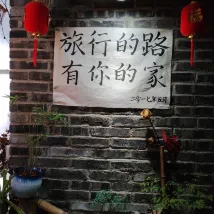 旅行的路
有你的家
二零一七年五月